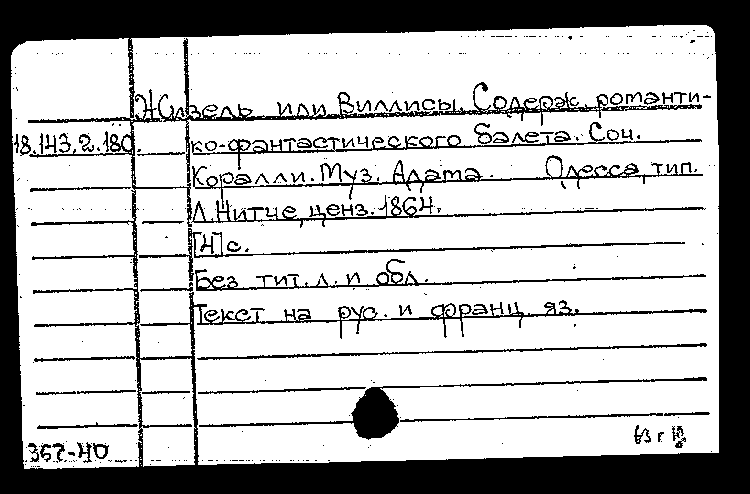 Жизель или Виллисы. Содерж. романти-
18.143.2.180. ко-фантастического балета. Соч.
Коралли. Муз. Адама. Одесса, тип.
Л. Нитче, ценз. 1864.
[4] с.
Без тит. л. и обл.
Текст на рус. и франц. яз.
367-40
63 г